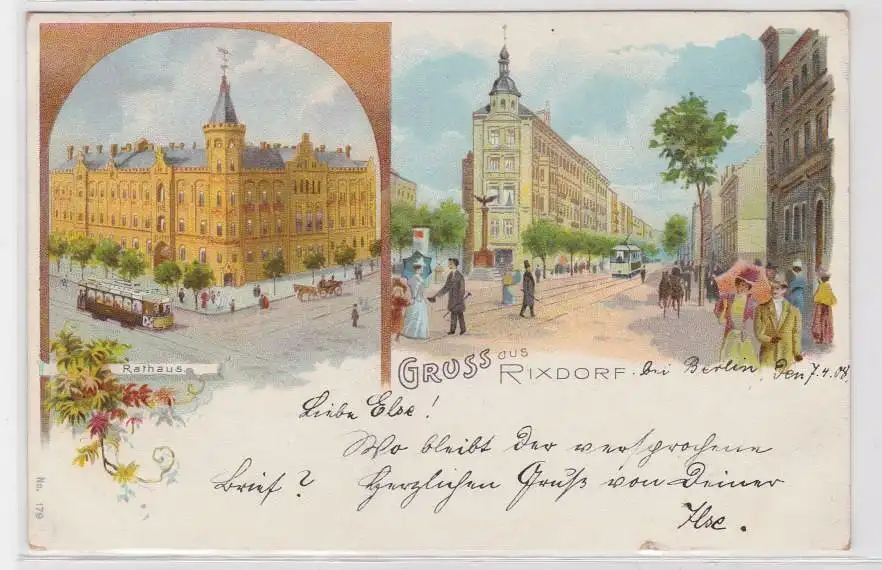 Rathaus.
GRUSS aus RIXDORF. bei Berlin, den 7.4.08
Liebe Else!
Wo bleibt der versprochene
Brief? Herzlichen Gruß von Deiner
Ilse.
No. 179